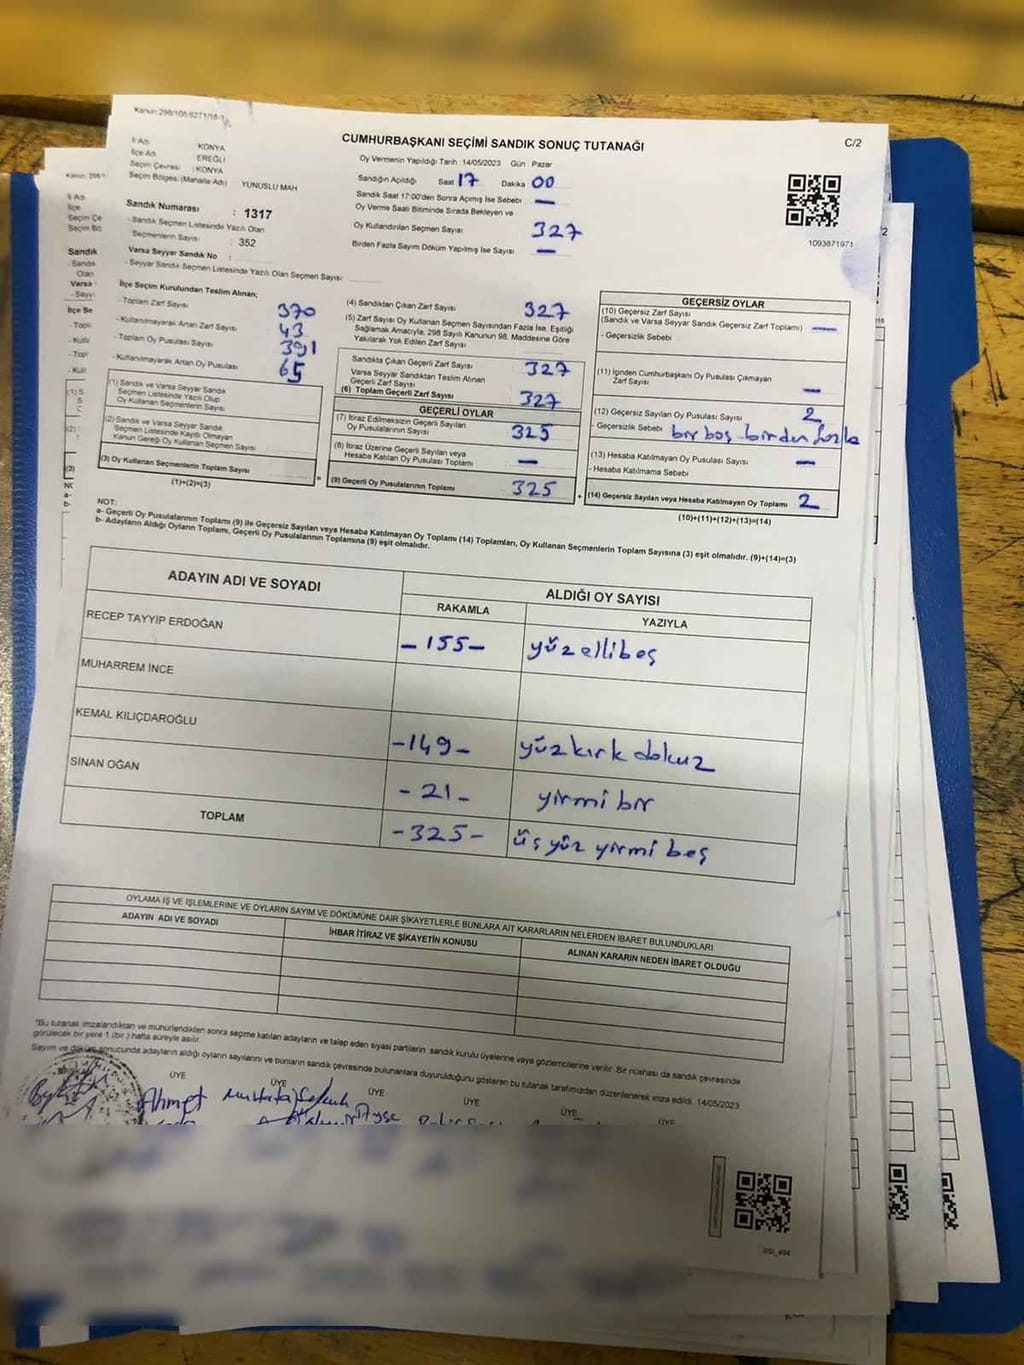 Kanun:298/105,6271/18-1
CUMHURBAŞKANI SEÇİMİ SANDIK SONUÇ TUTANAĞI
C/2
İl Adı : KONYA
İlçe Adı : EREĞLİ
Seçim Çevresi : KONYA
Seçim Bölgesi (Mahalle Adı) YUNUSLU MAH
Oy Vermenin Yapıldığı Tarih :14/05/2023 Gün : Pazar
Sandığın Açıldığı Saat 17 Dakika 00
Sandık Saat 17:00'den Sonra Açımış İse Sebebi —
Oy Verme Saati Bitiminde Sırada Bekleyen ve
Oy Kullandırılan Seçmen Sayısı 327
Birden Fazla Sayım Döküm Yapılmış İse Sayısı —
1093871971
Sandık Numarası : 1317
- Sandık Seçmen Listesinde Yazılı Olan
Seçmenlerin Sayısı : 352
Varsa Seyyar Sandık No :
- Seyyar Sandık Seçmen Listesinde Yazılı Olan Seçmen Sayısı
İlçe Seçim Kurulundan Teslim Alınan;
- Toplam Zarf Sayısı 370
- Kullanılmayarak Artan Zarf Sayısı 43
- Toplam Oy Pusulası Sayısı 391
- Kullanılmayarak Artan Oy Pusulası 65
(1) Sandık ve Varsa Seyyar Sandık
Seçmen Listesinde Yazılı Olup
Oy Kullanan Seçmenlerin Sayısı
(2) Sandık ve Varsa Seyyar Sandık
Seçmen Listesinde Kayıtlı Olmayan
Kanun Gereği Oy Kullanan Seçmen Sayısı
(3) Oy Kullanan Seçmenlerin Toplam Sayısı
(1)+(2)=(3)
(4) Sandıktan Çıkan Zarf Sayısı 327
(5) Zarf Sayısı Oy Kullanan Seçmen Sayısından Fazla İse, Eşitliği
Sağlamak Amacıyla, 298 Sayılı Kanunun 98. Maddesine Göre
Yakılarak Yok Edilen Zarf Sayısı
Sandıkta Çıkan Geçerli Zarf Sayısı 327
Varsa Seyyar Sandıktan Teslim Alınan
Geçerli Zarf Sayısı
(6) Toplam Geçerli Zarf Sayısı 327
GEÇERLİ OYLAR
(7) İtiraz Edilmeksizin Geçerli Sayılan
Oy Pusulalarının Sayısı 325
(8) İtiraz Üzerine Geçerli Sayılan veya
Hesaba Katılan Oy Pusulası Toplamı —
(9) Geçerli Oy Pusulalarının Toplamı 325
GEÇERSİZ OYLAR
(10) Geçersiz Zarf Sayısı
(Sandık ve Varsa Seyyar Sandık Geçersiz Zarf Toplamı) —
- Geçersizlik Sebebi
(11) İçinden Cumhurbaşkanı Oy Pusulası Çıkmayan
Zarf Sayısı —
(12) Geçersiz Sayılan Oy Pusulası Sayısı 2
- Geçersizlik Sebebi bir boş birden fazla
(13) Hesaba Katılmayan Oy Pusulası Sayısı —
- Hesaba Katılmama Sebebi
(14) Geçersiz Sayılan veya Hesaba Katılmayan Oy Toplamı 2
(10)+(11)+(12)+(13)=(14)
NOT:
a- Geçerli Oy Pusulalarının Toplamı (9) ile Geçersiz Sayılan veya Hesaba Katılmayan Oy Toplamı (14) Toplamları, Oy Kullanan Seçmenlerin Toplam Sayısına (3) eşit olmalıdır. (9)+(14)=(3)
b- Adayların Aldığı Oyların Toplamı, Geçerli Oy Pusulalarının Toplamına (9) eşit olmalıdır.
ADAYIN ADI VE SOYADI
ALDIĞI OY SAYISI
RAKAMLA YAZIYLA
RECEP TAYYİP ERDOĞAN -155- yüzellibeş
MUHARREM İNCE
KEMAL KILIÇDAROĞLU -149- yüzkırk dokuz
SİNAN OĞAN -21- yirmi bir
TOPLAM -325- üçyüz yirmi beş
OYLAMA İŞ VE İŞLEMLERİNE VE OYLARIN SAYIM VE DÖKÜMÜNE DAİR ŞİKAYETLERLE BUNLARA AİT KARARLARIN NELERDEN İBARET BULUNDUKLARI
ADAYIN ADI VE SOYADI İHBAR İTİRAZ VE ŞİKAYETİN KONUSU ALINAN KARARIN NEDEN İBARET OLDUĞU
"Bu tutanak imzalandıktan ve mühürlendikten sonra seçime katılan adayların ve talep eden siyasi partilerin sandık kurulu üyelerine veya gözlemcilerine verilir. Bir nüshası da sandık çevresinde
görülecek bir yere 1 (bir) hafta süreyle asılır.
Sayım ve döküm sonucunda adayların aldığı oyların sayılarını ve bunların sandık çevresinde bulunanlara duyurulduğunu gösteren bu tutanak tarafımızdan düzenlenerek imza edildi. 14/05/2023
ÜYE ÜYE ÜYE ÜYE ÜYE ÜYE
Ahmet Mustafa Selcuk
Ayşe